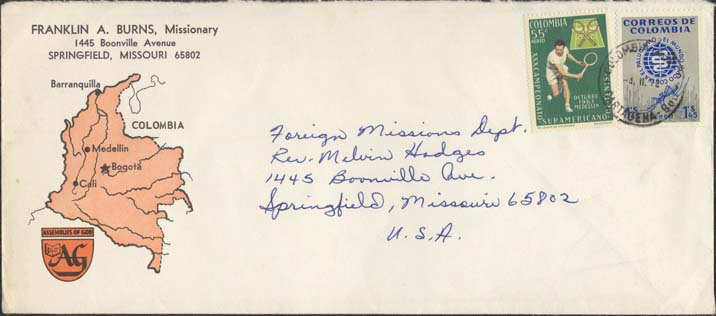 FRANKLIN A. BURNS, Missionary
1445 Boonville Avenue
SPRINGFIELD, MISSOURI 65802
Barranquilla
COLOMBIA
Medellin
Bogotá
Cali
ASSEMBLIES OF GOD
AG
COLOMBIA
55¢
AEREO
XXX CAMPEONATO
SURAMERICANO
DE TENIS
OCTUBRE
1963
MEDELLIN
CORREOS DE
COLOMBIA
Foreign Missions Dept.
Rev. Melvin Hodges
1445 Boonville Ave.
Springfield, Missouri 65802
U.S.A.